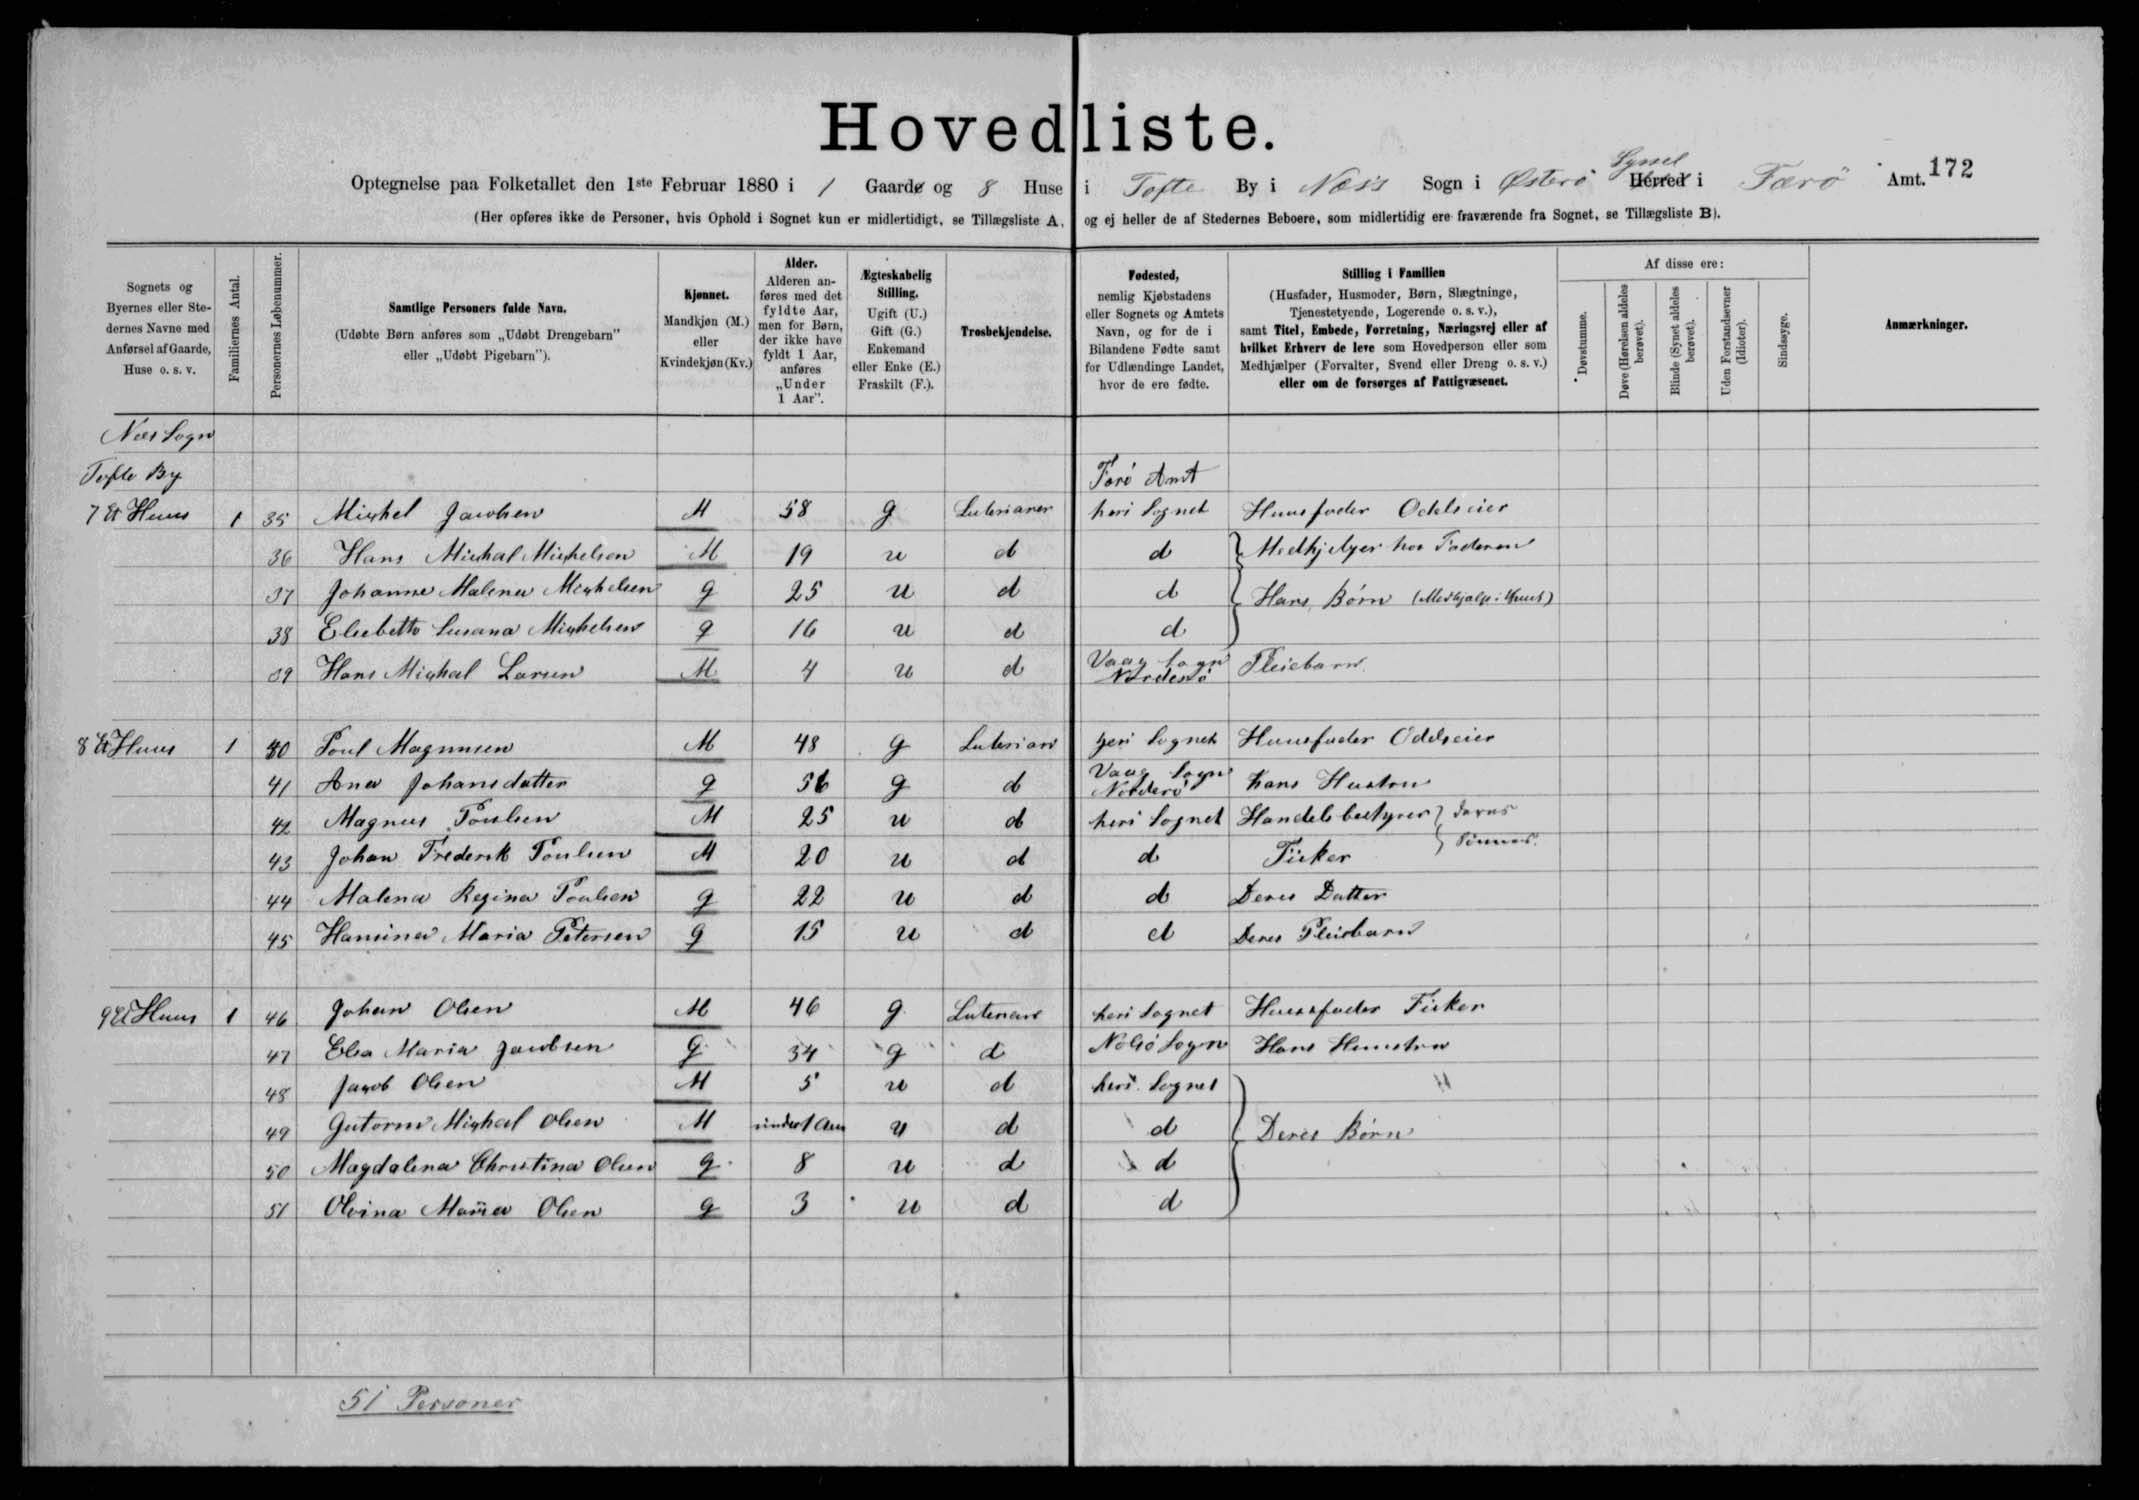 Hovedliste.
Optegnelse paa Folketallet den 1ste Februar 1880 i 1 Gaarde og 8 Huse i Tofte By i Næs Sogn i Østerö Syssel Herred i Færö Amt. 172
(Her opføres ikke de Personer, hvis Ophold i Sognet kun er midlertidigt, se Tillægsliste A, og ej heller de af Stedernes Beboere, som midlertidig ere fraværende fra Sognet, se Tillægsliste B).
Sognets og Byernes eller Stedernes Navne med Anførsel af Gaarde, Huse o. s. v.
Familiernes Antal.
Personernes Løbenummer.
Samtlige Personers fulde Navn.
(Udøbte Børn anføres som „Udøbt Drengebarn" eller „Udøbt Pigebarn").
Kjønnet.
Mandkjøn (M.) eller Kvindekjøn (Kv.)
Alder.
Alderen anføres med det fyldte Aar, men for Børn, der ikke have fyldt 1 Aar, anføres „Under 1 Aar".
Ægteskabelig Stilling.
Ugift (U.) Gift (G.) Enkemand eller Enke (E.) Fraskilt (F.).
Trosbekjendelse.
Fødested,
nemlig Kjøbstadens eller Sognets og Amtets Navn, og for de i Bilandene Fødte samt for Udlændinge Landet, hvor de ere fødte.
Stilling i Familien
(Husfader, Husmoder, Børn, Slægtninge, Tjenestetyende, Logerende o. s. v.), samt Titel, Embede, Forretning, Næringsvej eller af hvilket Erhverv de leve som Hovedperson eller som Medhjælper (Forvalter, Svend eller Dreng o. s. v.) eller om de forsørges af Fattigvæsenet.
Af disse ere:
Døvstumme.
Døve (Hørelsen aldeles berøvet).
Blinde (Synet aldeles berøvet).
Uden Forstandsevner (Idioter).
Sindssyge.
Anmærkninger.
Næs Sogn
Tofte By Færö Amt
7 Et Huus 1 35 Mighel Jacobsen M 58 g Luterianer heri Sognet Huusfader Odelseier
36 Hans Michal Mighelsen M 19 u d d Medhjelper hos Faderen
37 Johanne Malena Mighelsen q 25 u d d Hans Børn (Medhjælp i Huset)
38 Elsebetto Susana Mighelsen q 16 u d d
39 Hans Mighal Larsen M 4 u d Vaag Sogn Norderö Pleiebarn
8 Et Huus 1 40 Poul Magnusen M 48 g Luterian heri Sognet Huusfader Odelseier
41 Ana Johansdatter q 56 g d Vaag Sogn Norderö hans Hustru
42 Magnus Poulsen M 25 u d heri Sognet Handelsbestyrer deres
43 Johan Frederik Poulsen M 20 u d d Fisker Sönner.
44 Malena Regina Poulsen q 22 u d d Deres Datter
45 Hansina Maria Petersen q 15 u d d Deres Pleiebarn
9 Et Huus 1 46 Johan Olsen M 46 g Luterians heri Sognet Huusfader Fisker
47 Elsa Maria Jacobsen q 34 g d Nolsö Sogn Hans Huustru
48 Jacob Olsen M 5 u d heri Sognet
49 Gutorm Mighal Olsen M under 1 Aar u d d Deres Børn
50 Magdalena Christina Olsen q 8 u d d
51 Olvina Maria Olsen q 3 u d d
51 Personer